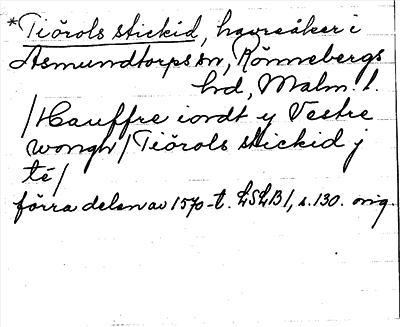 *Tiörols stickid, havreåker i
Asmundtorps sn, Rönnebergs
hd, Malm. l.
/Hauffre iordt y Vestre
wongh/Tiörols stickid j
té/
förra delen av 1570-t. LSLB1, s.130. orig.